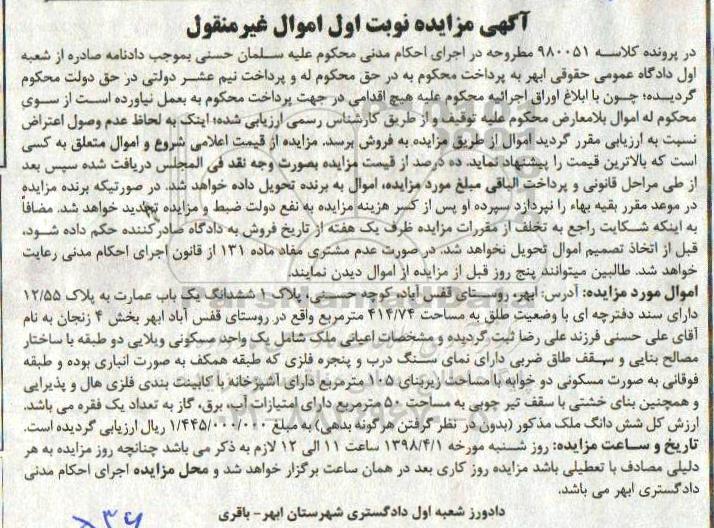 آگهی مزایده نوبت اول اموال غیرمنقول
در پرونده کلاسه ۹۸۰۰۵۱ مطروحه در اجرای احکام مدنی محکوم علیه سلمان حسنی بموجب دادنامه صادره از شعبه
اول دادگاه عمومی حقوقی ابهر به پرداخت محکوم به در حق محکوم له و پرداخت نیم عشر دولتی در حق دولت محکوم
گردیده؛ چون با ابلاغ اوراق اجرائیه محکوم علیه هیچ اقدامی در جهت پرداخت محکوم به بعمل نیاورده است از سوی
محکوم له اموال بلامعارض محکوم علیه توقیف و از طریق کارشناس رسمی ارزیابی شده؛ اینک به لحاظ عدم وصول اعتراض
نسبت به ارزیابی مقرر گردید اموال از طریق مزایده به فروش برسد. مزایده از قیمت اعلامی شروع و اموال متعلق به کسی
است که بالاترین قیمت را پیشنهاد نماید. ده درصد از قیمت مزایده بصورت وجه نقد فی المجلس دریافت شده سپس بعد
از طی مراحل قانونی و پرداخت الباقی مبلغ مورد مزایده، اموال به برنده تحویل داده خواهد شد. در صورتیکه برنده مزایده
در موعد مقرر بقیه بهاء را نپردازد سپرده او پس از کسر هزینه مزایده به نفع دولت ضبط و مزایده تجدید خواهد شد. مضافاً
به اینکه شکایت راجع به تخلف از مقررات مزایده ظرف یک هفته از تاریخ فروش به دادگاه صادرکننده حکم داده شود،
قبل از اتخاذ تصمیم اموال تحویل نخواهد شد. در صورت عدم مشتری مفاد ماده ۱۳۱ از قانون اجرای احکام مدنی رعایت
خواهد شد. طالبین میتوانند پنج روز قبل از مزایده از اموال دیدن نمایند.
اموال مورد مزایده: آدرس: ابهر، روستای قفس آباد، کوچه حسینی، پلاک ۱ ششدانگ یک باب عمارت به پلاک ۱۲/۵۵
دارای سند دفترچه ای با وضعیت طلق به مساحت ۴۱۴/۷۴ مترمربع واقع در روستای قفس آباد ابهر بخش ۴ زنجان به نام
آقای علی حسنی فرزند علی رضا ثبت گردیده و مشخصات اعیانی ملک شامل یک واحد مسکونی ویلایی دو طبقه با ساختار
مصالح بنایی و سقف طاق ضربی دارای نمای سنگ درب و پنجره فلزی که طبقه همکف به صورت انباری بوده و طبقه
فوقانی به صورت مسکونی دو خوابه با مساحت زیربنای ۱۰۵ مترمربع دارای آشپزخانه با کابینت بندی فلزی هال و پذیرایی
و همچنین بنای خشتی با سقف تیر چوبی به مساحت ۵۰ مترمربع دارای امتیازات آب، برق، گاز به تعداد یک فقره می باشد.
ارزش کل شش دانگ ملک مذکور (بدون در نظر گرفتن هرگونه بدهی) به مبلغ ۱/۴۴۵/۰۰۰/۰۰۰ ریال ارزیابی گردیده است.
تاریخ و ساعت مزایده: روز شنبه مورخه ۱۳۹۸/۴/۱ ساعت ۱۱ الی ۱۲ لازم به ذکر می باشد چنانچه روز مزایده به هر
دلیلی مصادف با تعطیلی باشد مزایده روز کاری بعد در همان ساعت برگزار خواهد شد و محل مزایده اجرای احکام مدنی
دادگستری ابهر می باشد.
دادورز شعبه اول دادگستری شهرستان ابهر- باقری